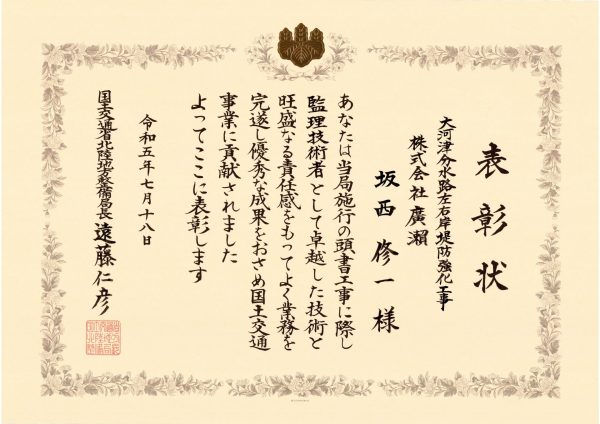 表彰状
大河津分水路左右岸堤防強化工事
株式会社廣瀬
坂西修一様
あなたは当局施行の頭書工事に際し
監理技術者として卓越した技術と
旺盛なる責任感をもってよく業務を
完遂し優秀な成果をおさめ国土交通
事業に貢献されました
よってここに表彰します
令和五年七月十八日
国土交通省北陸地方整備局長 遠藤仁彦